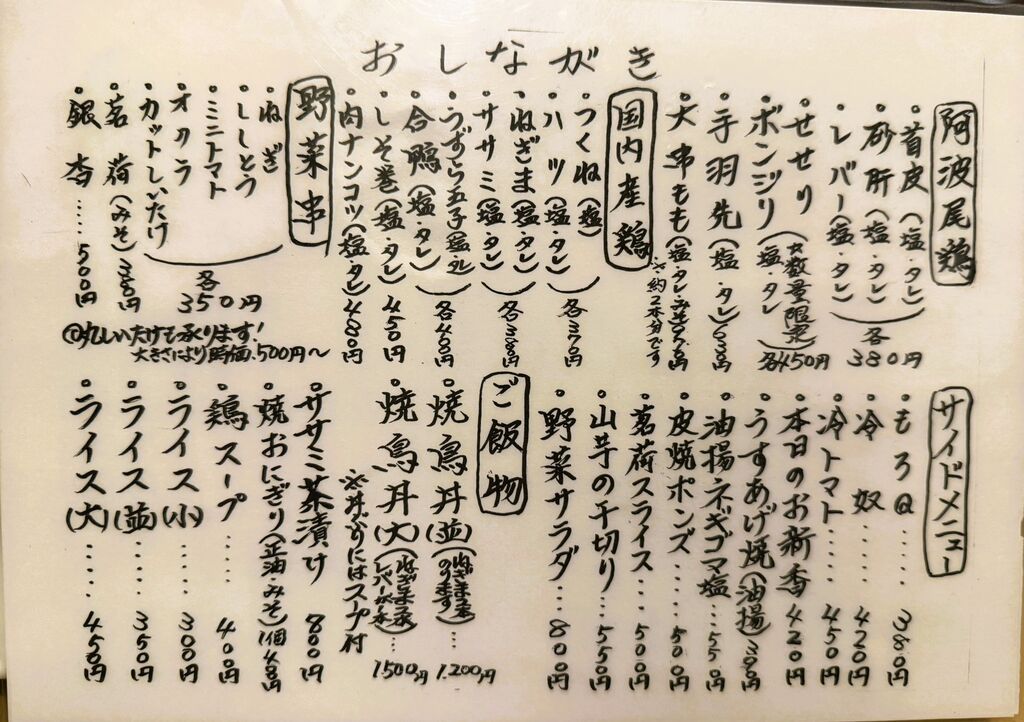 おしながき
阿波尾鶏
首皮(塩・タレ)
砂肝(塩・タレ)
レバー(塩・タレ)
各380円
せせり
ボンジリ(塩・タレ)
(少数量限定)
各450円
手羽先(塩・タレ)630円
大串もも(塩・タレ・みそ)
※約2本分です
国内産鶏
つくね(塩)
ハツ(塩・タレ)
各370円
ねぎま(塩・タレ)
ササミ(塩・タレ)
各380円
うずら玉子(塩・タレ)
合鴨(塩・タレ)
各400円
しそ巻(塩・タレ)450円
肉ナンコツ(塩・タレ)480円
野菜串
ねぎ
ししとう
ミニトマト
オクラ
カットしいたけ
各350円
茗荷(みそ)380円
銀杏……500円
丸しいたけも承ります!
大きさにより時価.500円〜
サイドメニュー
もろQ……380円
冷奴……420円
冷トマト……450円
本日のお新香420円
うすあげ焼(油揚)390円
油揚ネギゴマ塩…550円
皮焼ポンズ……500円
茗荷スライス……500円
山芋の千切り…550円
野菜サラダ…800円
ご飯物
焼鳥丼(並)(ねぎま2本のります)…1.200円
焼鳥丼(大)…1.500円
※丼ぶりにはスープ付
ササミ茶漬け 800円
焼おにぎり(正油・みそ)1個400円
鶏スープ……400円
ライス(小)……300円
ライス(並)……350円
ライス(大)……450円